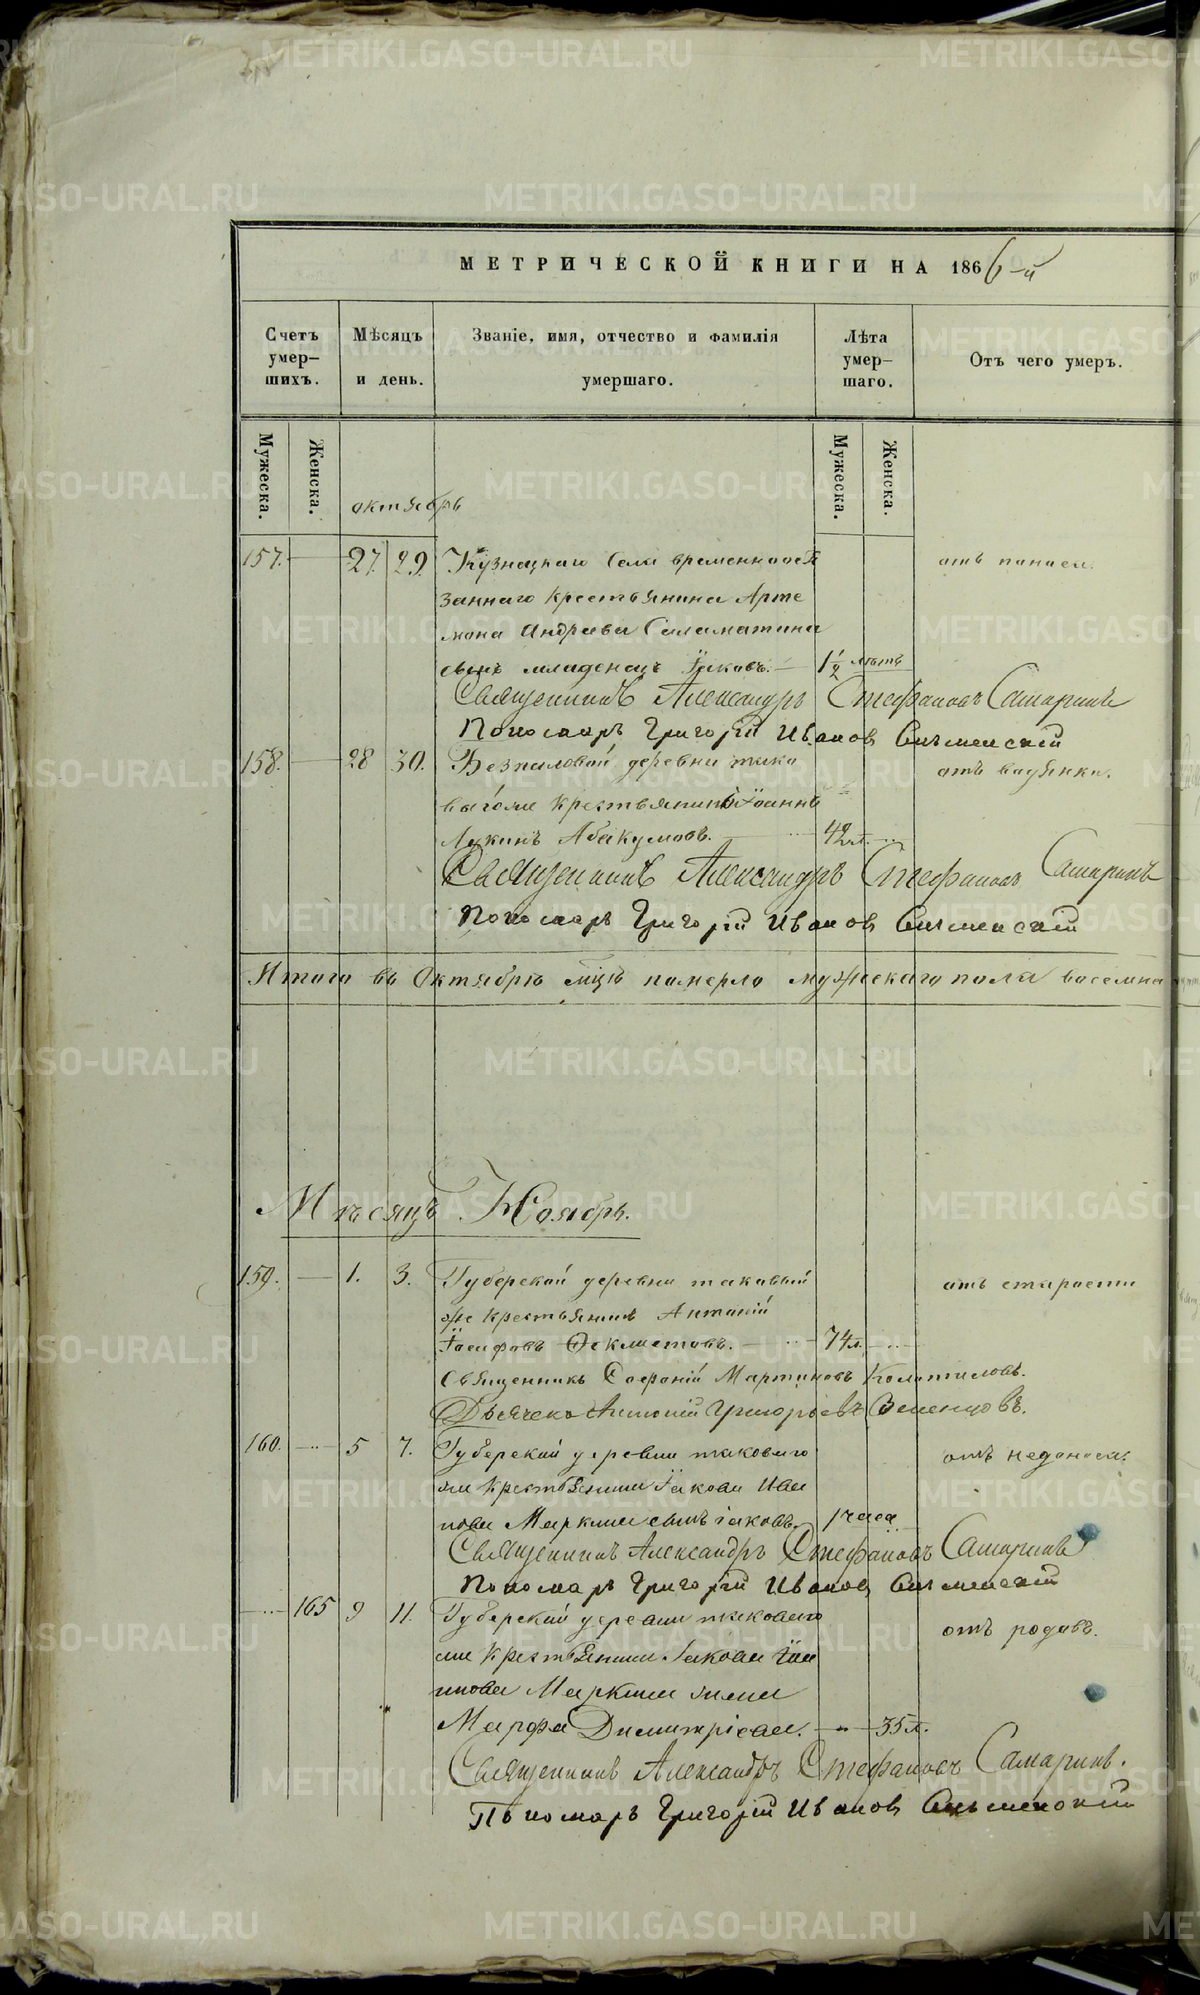 МЕТРИЧЕСКОЙ КНИГИ НА 1866-й
Счетъ умер–шихъ.
Мѣсяцъ и день.
Званіе, имя, отчество и фамилія умершаго.
Лѣта умер–шаго.
Отъ чего умеръ.
Мужеска.
Женска.
Мужеска.
Женска.
октябрь
157. 27. 29. Кузнецкаго села временнообя
отъ поноса.
заннаго крестьянина Арте
мона Андреева Саламатина
сынъ младенецъ Іаковъ. 1½ лѣтъ
Священникъ Александръ Стефановъ Самаринъ
Пономарь Григорій Ивановъ
158. 28 30. Безпаловой деревни тако
отъ водянки.
выйже крестьянинъ Іоаннъ
Лукинъ Абакумовъ. 42 л.
Священникъ Александръ Стефановъ Самаринъ
Пономарь Григорій Ивановъ
Итого въ Октябрѣ мцѣ померло мужескаго пола восемна
Мѣсяцъ Ноябрь.
159. 1. 3. Губерской деревни таковый
отъ старости
же крестьянинъ Антоній
Іосифовъ Феклистовъ. 74 л.
Священникъ Софоній Мартиновъ
Дьячекъ Антоній Григорьевъ Зеленцовъ.
160. 5 7. Губерской деревни таковаго
отъ недоноса.
же крестьянина Іакова Ива
нова Маркина сынъ Іаковъ. 1 часа
Священникъ Александръ Стефановъ Самаринъ
Пономарь Григорій Ивановъ
165 9 11. Губерской деревни таковаго
отъ родовъ.
же крестьянина Іакова Іоа
ннова Маркина жена
Марфа Димитріева. 35 л.
Священникъ Александръ Стефановъ Самаринъ.
Пономарь Григорій Ивановъ
METRIKI.GASO-URAL.RU